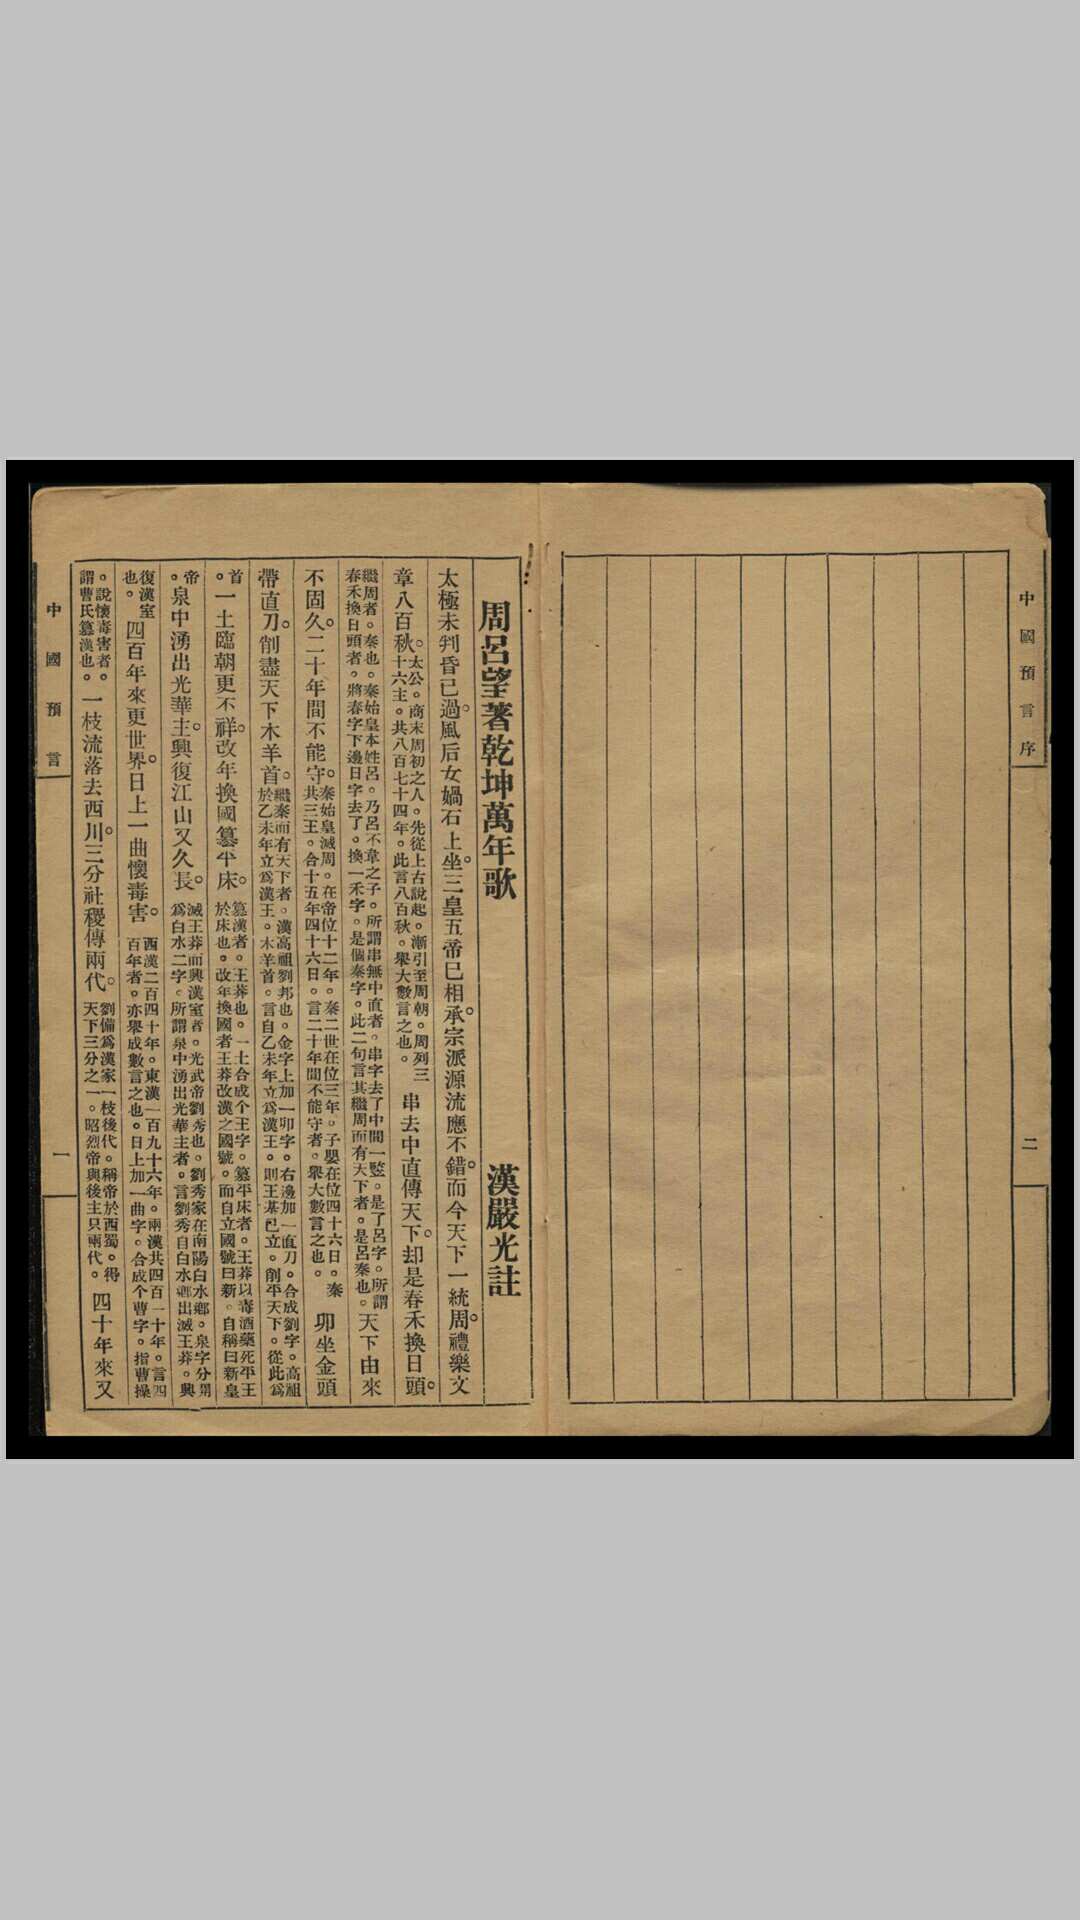 中國預言序
二
周呂望著乾坤萬年歌
漢嚴光註
太極未判昏已過。風后女媧石上坐。三皇五帝已相承。宗派源流應不錯。而今天下一統周。禮樂文
章八百秋。太公。商末周初之人。先從上古說起。漸引至周朝。周列三十六主。共八百七十四年。此言八百秋。舉大數言之也。串去中直傳天下。却是春禾換日頭。
繼周者。秦也。秦始皇本姓呂。乃呂不韋之子。所謂串無中直者。串字去了中間一豎。是了呂字。所謂春禾換日頭者。將春字下邊日字去了。換一禾字。是個秦字。此二句言其繼周而有天下者。是呂秦也。天下由來
不固久。二十年間不能守。秦始皇滅周。在帝位十二年。秦二世在位三年。子嬰在位四十六日。秦共三王。合十五年四十六日。言二十年間不能守者。舉大數言之也。卯坐金頭
帶直刀。削盡天下木羊首。繼秦而有天下者。漢高祖劉邦也。金字上加一卯字。右邊加一直刀。合成劉字。高祖於乙未年立爲漢王。木羊首。言自乙未年立爲漢王。則王基已立。削平天下。從此爲
首。一土臨朝更不祥。改年換國篡平床。篡漢者。王莽也。一土合成个王字。篡平床者。王莽以毒酒藥死平王於床也。改年換國者王莽改漢之國號。而自立國號曰新。自稱曰新皇
帝。泉中湧出光華主。興復江山又久長。滅王莽而興漢室者。光武帝劉秀也。劉秀家在南陽白水鄉。泉字分開爲白水二字。所謂泉中湧出光華主者。言劉秀自白水鄉出滅王莽。興
復漢室也。四百年來更世界。日上一曲懷毒害。西漢二百四十年。東漢一百九十六年。兩漢共四百一十年。言四百年者。亦舉成數言之也。日上加一曲字。合成个曹字。指曹操
。說懷毒害者。謂曹氏篡漢也。一枝流落去西川。三分社稷傳兩代。劉備爲漢家一枝後代。稱帝於西蜀。得天下三分之一。昭烈帝與後主只兩代。四十年來又
中國預言
一